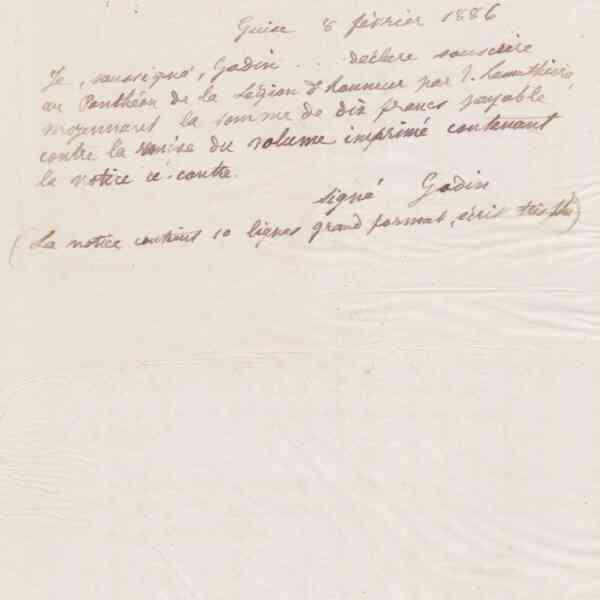 Guise 8 février 1886
Je, soussigné, Godin .. déclare souscrire
au Panthéon de la Légion d'honneur par T. Lamathière,
moyennant la somme de dix francs payable
contre la remise du volume imprimé contenant
la notice ci-contre.
signé Godin
(La notice contient 10 lignes grand format, écris